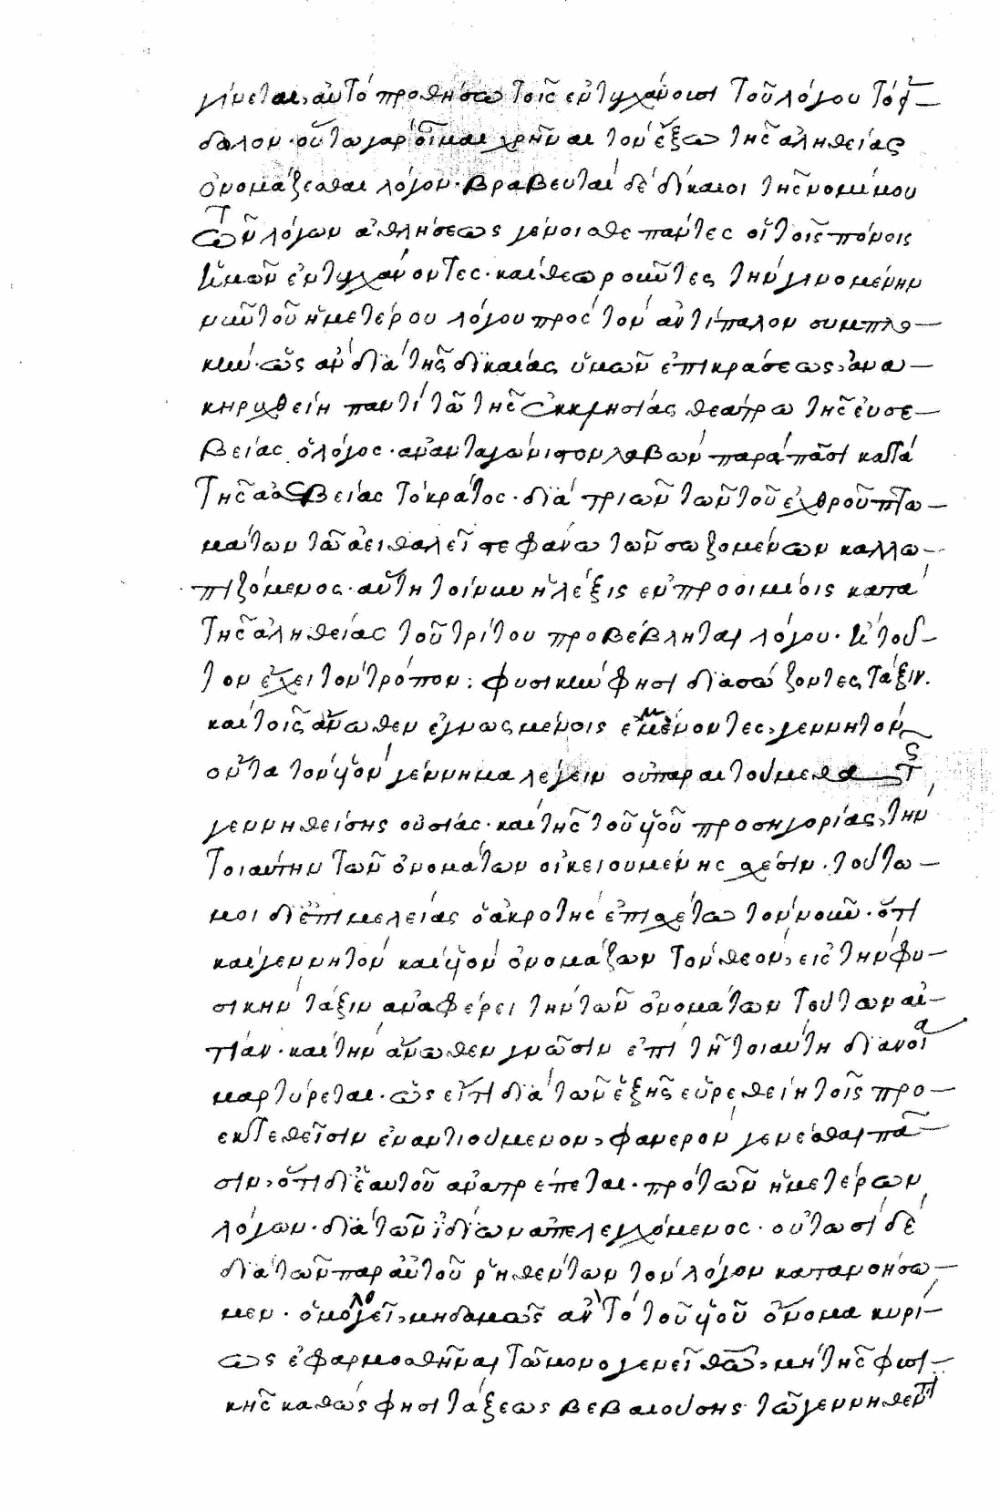 γίνεται, αὐτὸ προθήσω τοῖς ἐντυγχάνουσι τοῦ λόγου τὸ σ̓—
δαλον· οὕτω γὰρ οἶμαι χρῆναι τὸν ἔξω τῆς ἀληθείας
ὀνομάζεσθαι λόγον· βραβευταὶ δὲ δίκαιοι τῆς νομίμου
τῶν λόγων ἀθλήσεως γένοισθε πάντες οἱ τοῖς πόνοις
ἡμῶν ἐντυγχάνοντες· καὶ θεωροῦντες τὴν γινομένην
νῦν τοῦ ἡμετέρου λόγου πρὸς τὸν ἀντίπαλον συμπλο—
κήν· ὡς ἂν διὰ τῆς δικαίας ὑμῶν ἐπικράσεως, ἀνα—
κηρυχθείη παντὶ τῶ τῆς ἐκκλησίας θεάτρω τῆς εὐσε—
βείας ὁ λόγος· ἀνανταγώνιστον λαβὼν παρὰ πᾶσι κατὰ
τῆς ἀσεβείας τὸ κράτος· διὰ τριῶν τῶν τοῦ ἐχθροῦ πτω—
μάτων τῶ ἀειθαλεῖ στεφάνω τῶν σωζομένων καλλω—
πιζόμενος· αὕτη τοίνυν ἡ λέξις ἐν προοιμίοις κατὰ
τῆς ἀληθείας τοῦ τρίτου προβέβληται λόγου· κ̀ τοῦ—
τον ἔχει τὸν τρόπον: φυσικὴν φησὶ διασώζοντες τάξιν.
καὶ τοῖς ἄνωθεν ἐγνωσμένοις ἐμμένοντες, γεννητὸν
ὄντα τὸν υἱὸν γέννημα λέγειν οὐ παραιτούμεθα τῆς
γεννηθείσης οὐσίας· καὶ τῆς τοῦ υἱοῦ προσηγορίας, τὴν
τοιαύτην τῶν ὀνομάτων οἰκειουμένης σχέσιν· τούτω—
μοι δι' ἐπιμελείας ὁ ἀκροατὴς ἐπισχέτω τὸν νοῦν· ὅτι
καὶ γεννητὸν καὶ υἱὸν ὀνομάζων τὸν θεὸν, εἰς τὴν φυ—
σικὴν τάξιν ἀναφέρει τὴν τῶν ὀνομάτων τούτων αἰ—
τίαν· καὶ τὴν ἄνωθεν γνῶσιν ἐπὶ τῆ τοιαύτη διανοία
μαρτύρεται· ὡς εἴ τι διὰ τῶν ἑξῆς εὑρεθείη τοῖς προ—
εκτεθεῖσιν ἐναντιούμενον, φανερὸν γενέσθαι πᾶ—
σιν, ὅτι δι' ἑαυτοῦ ἀνατρέπεται· πρὸ τῶν ἡμετέρων
λόγων· διὰ τῶν ἰδίων ἀπελεγχόμενος· οὑτωσὶ δὲ
διὰ τῶν παρ' αὐτοῦ ῥηθέντων τὸν λόγον κατανοήσω—
μεν· ὁμολογεῖ, μηδαμῶς ἂν τὸ τοῦ υἱοῦ ὄνομα κυρί—
ως ἐφαρμοσθῆναι τῶ μονογενεῖ θῶ, μὴ τῆς φυσι—
κῆς καθώς φησι τάξεως βεβαιούσης τῶ γεννηθέντι